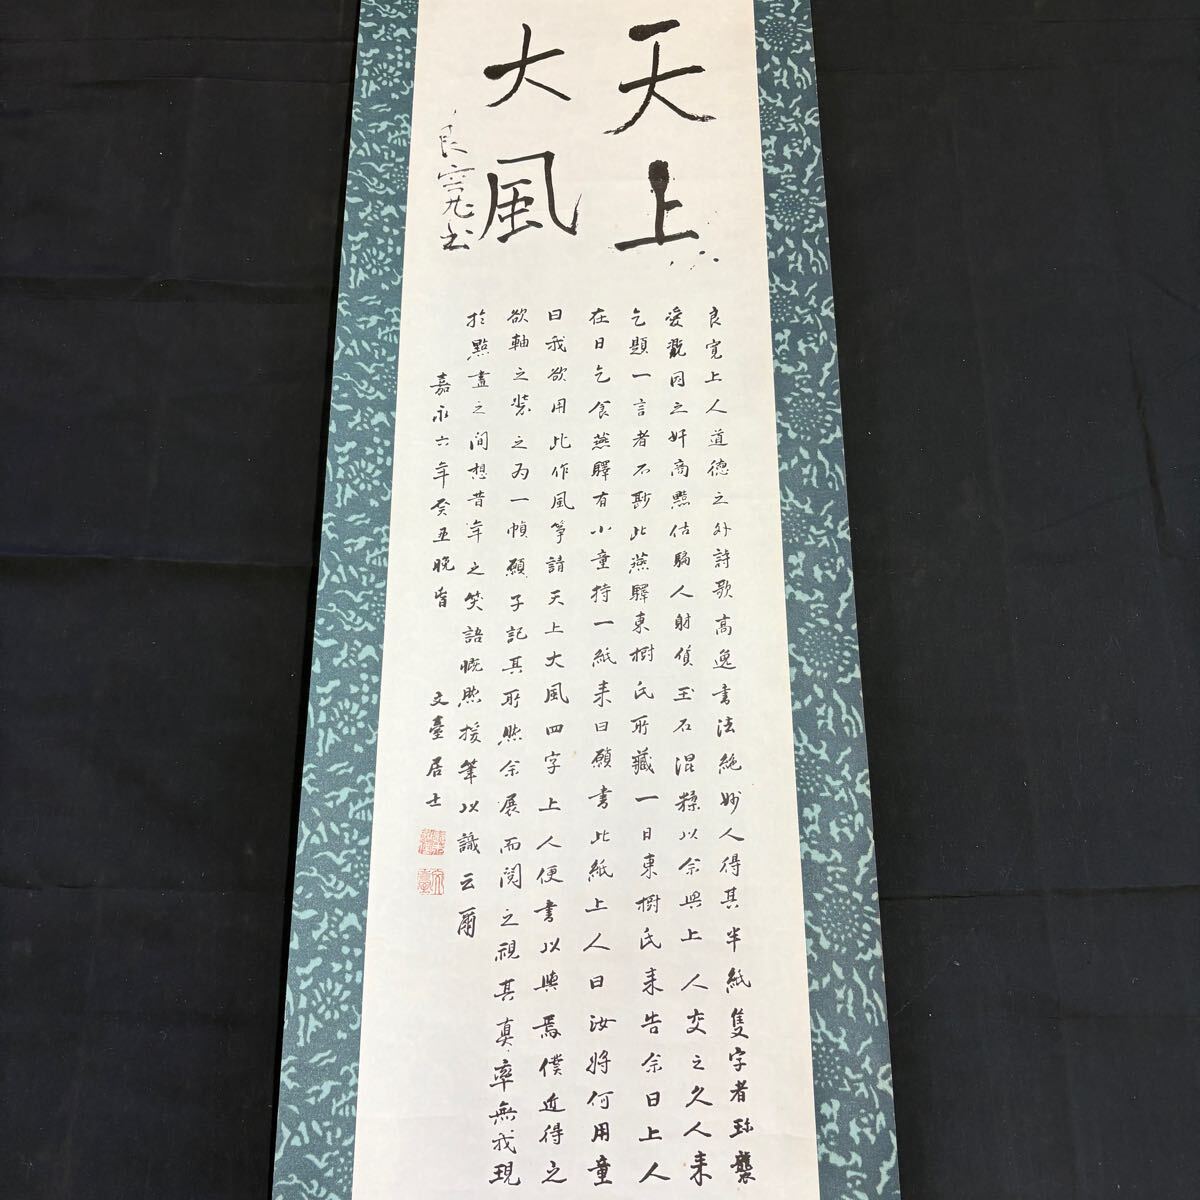 天上
大風
良寛書
良寛上人道徳之外詩歌高逸書法絶妙人得其半紙隻字者珎襲
愛翫因之奸商黠估騙人射貨玉石混糅以余與上人交之久人来
乞題一言者不尠此燕驛東樹氏所藏一日東樹氏来告余曰上人
在日乞食燕驛有小童持一紙来曰願書此紙上人曰汝将何用童
曰我欲用此作風箏請天上大風四字上人便書以與焉僕近得之
欲軸之裝之為一幀願子記其所然余展而閲之視其真率無我現
於點畫之间想昔年之笑語慨然援筆以識云爾
嘉永六年癸丑晚 文臺居士